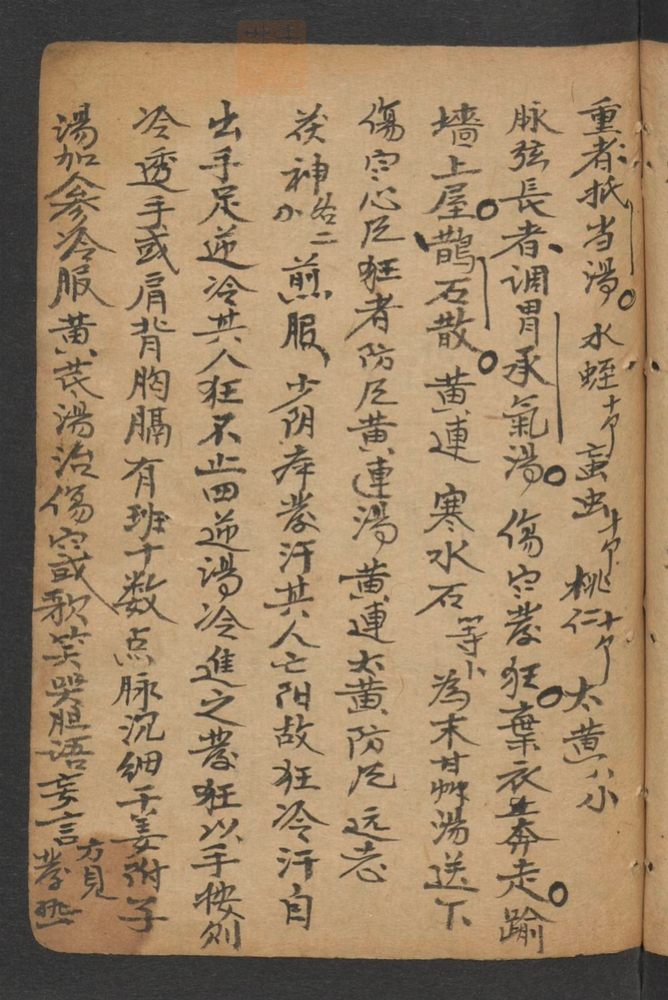 重者抵当湯水蛭十个虻虫十个桃仁十个大黄八小
脉弦長者调胃承氣湯傷宀發狂棄衣奔走踰
墻上屋鵲石散黄連寒水石等卜為末甘艸湯送下
傷宀心尼狂者防尼黄連湯黄連大黄防尼远志
茯神各二卜煎服少阴病發汗其人亡阳故狂冷汗自
出手足逆冷其人狂不止四逆湯冷進之發狂以手按则
冷透手或肩背胸膈有班十数点脉沉细干姜附子
湯加人参冷服黄芪湯治傷宀或歌笑哭胆語妄言方見發热